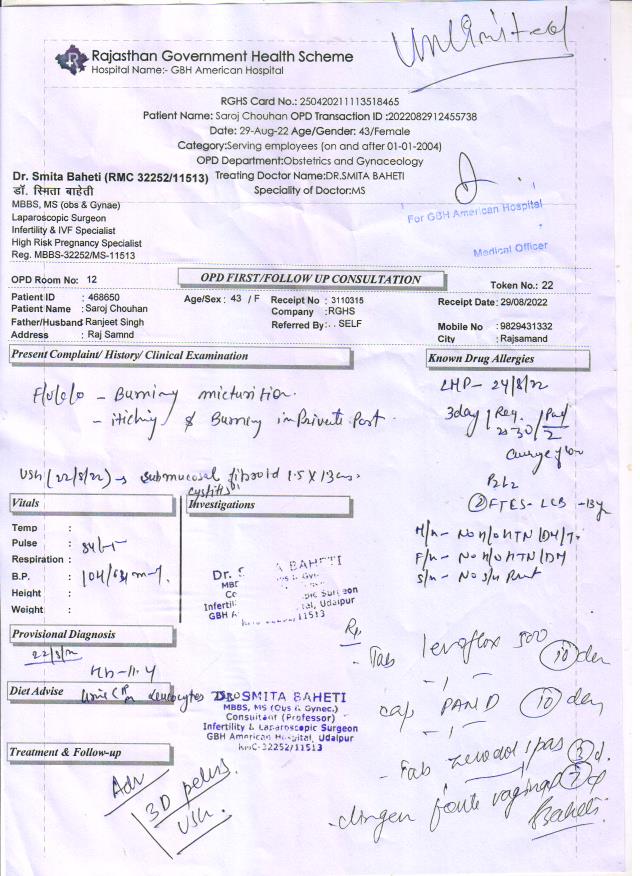 Unlimited
Rajasthan Government Health Scheme
Hospital Name:- GBH American Hospital
RGHS Card No.: 250420211113518465
Patient Name: Saroj Chouhan OPD Transaction ID :2022082912455738
Date: 29-Aug-22 Age/Gender: 43/Female
Category:Serving employees (on and after 01-01-2004)
OPD Department:Obstetrics and Gynaceology
Dr. Smita Baheti (RMC 32252/11513) Treating Doctor Name:DR.SMITA BAHETI
डॉ. स्मिता बाहेती
Speciality of Doctor:MS
MBBS, MS (obs & Gynae)
Laparoscopic Surgeon
Infertility & IVF Specialist
High Risk Pregnancy Specialist
Reg. MBBS-32252/MS-11513
For GBH American Hospital
Medical Officer
OPD Room No: 12
OPD FIRST/FOLLOW UP CONSULTATION
Token No.: 22
Patient ID : 468650
Age/Sex : 43 / F
Receipt No : 3110315
Receipt Date: 29/08/2022
Patient Name : Saroj Chouhan
Company : RGHS
Father/Husband Ranjeet Singh
Referred By: . . SELF
Mobile No : 9829431332
Address : Raj Samnd
City : Rajsamand
Present Complaint/ History/ Clinical Examination
Known Drug Allergies
LMP- 24/8/22
- Burning micturition.
- itiching & Burning in Private Part.
3day
USG (22/8/22) → submucosal fibroid 1.5 x 13 cm.
cystitis
P2L2
② FTES- LCB
Vitals
Investigations
Temp :
Pulse : 84
Respiration :
B.P. : 104/64
Height :
Weight :
Dr. S A BAHETI
Infertil al, Udaipur
Provisional Diagnosis
22/8/22
Hb-11.4
Rx
- Tab levoflox 500 ⑩ day
Diet Advise
Urine leucocytes
Dr. SMITA BAHETI
MBBS, MS (Obs & Gynec.)
Consultant (Professor)
Infertility & Laparoscopic Surgeon
GBH American Hospital, Udaipur
RMC-32252/11513
cap PAN D ⑩ day
Treatment & Follow-up
- Tab zerodol spas ③ d.
Adv
3D pelvis
USG.
- clingen forte vaginal ⑦
Baheti